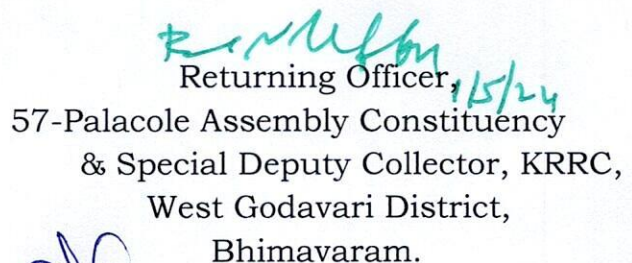 Returning Officer,
1/5/24
57-Palacole Assembly Constituency
& Special Deputy Collector, KRRC,
West Godavari District,
Bhimavaram.